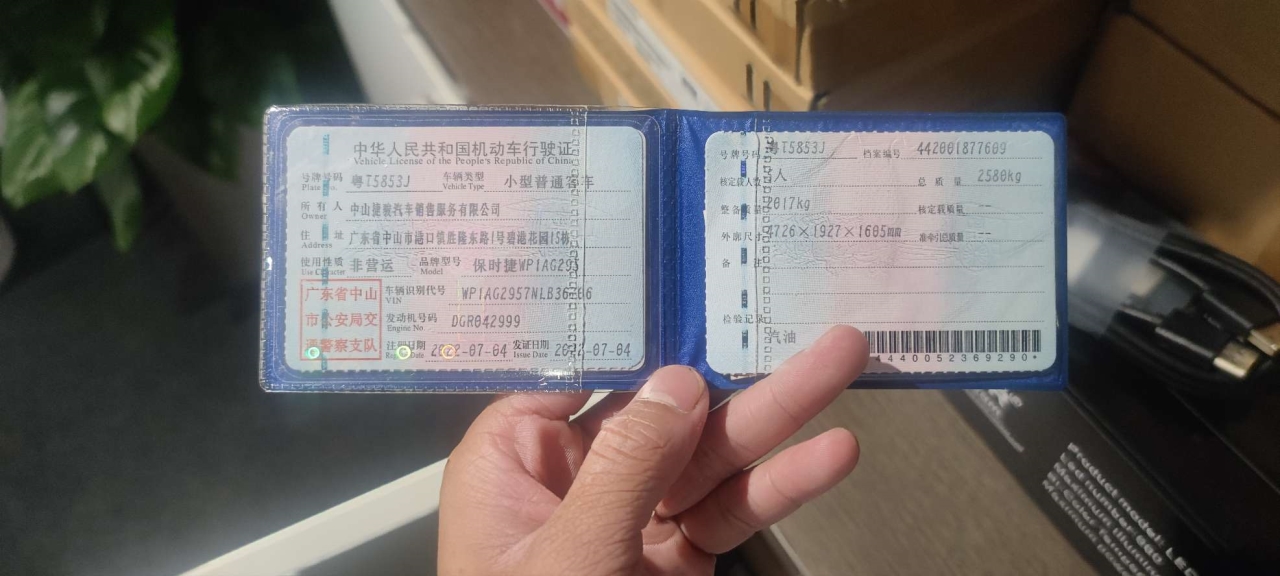 中华人民共和国机动车行驶证
Vehicle License of the People's Republic of China
号牌号码 粤T5853J 车辆类型 小型普通客车
Plate No. Vehicle Type
所有人 中山捷骏汽车销售服务有限公司
Owner
住址 广东省中山市港口镇胜隆东路1号碧港花园15栋
Address
使用性质 非营运 品牌型号 保时捷WP1AG295
Use Character Model
广东省中山
市公安局交
通警察支队
车辆识别代号 WP1AG2957NLB36266
VIN
发动机号码 DGR042999
Engine No.
注册日期 2022-07-04 发证日期 2022-07-04
Register Date Issue Date
号牌号码 粤T5853J 档案编号 442001877609
核定载人数 人 总质量 2580kg
整备质量 2017kg 核定载质量 --
外廓尺寸 4726×1927×1605mm 准牵引总质量 --
备注
检验记录
汽油
4400523692 90*
Product model: LE
Led number: 660
Maximum